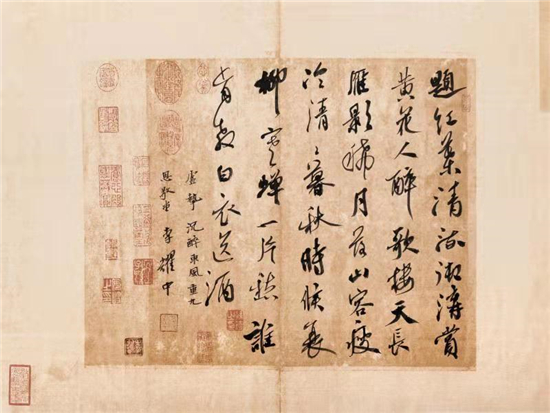 題红葉清流御溝賞
黄花人醉歌樓天長
雁影稀月落山容瘦
冷清〻暮秋時候衰
柳寒蟬一片愁誰
肯教白衣送酒
盧摯沉醉東風重九
李耀中